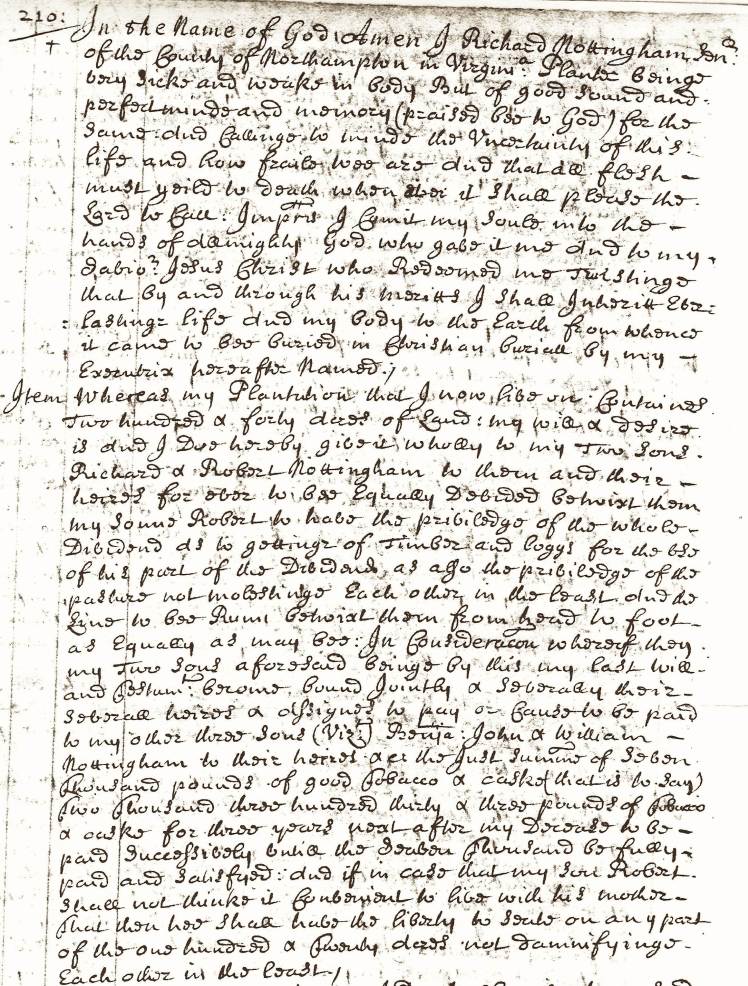 210:
In the Name of God Amen I Richard Nottingham Senr:
of the County of Northampton in Virginia: Plantr beinge
very sicke and weake in body But of good sound and
perfect minde and memory (praised bee to God) for the
same: and Callinge to minde the Uncertainty of this
life and how fraile wee are and that all flesh -
must yeild to death when it shall please the
Lord to Call: Imprs I Comit my soule into the -
hands of allmighty God who gave it me and to my
Savior: Jesus Christ who Redeemed me Trustinge
that by and through his meritts I shall Inheritt Ever:
: lastinge life and my body to the Earth from whence
it came to bee buried in Christian buriall by my -
Executrix hereafter Named;
- Item Whereas my Plantation that I now live on Containes
Two hundred & forty acres of Land: my will & desire
is and I Doe hereby give it wholly to my Two sons.
Richard & Robert Nottingham to them and their -
heires for ever to bee Equally Devided betwixt them
my sonne Robert to have the priviledge of the whole -
Dividend as to gettinge of Timber and loggs for the use
of his part of the Dividend, as also the priviledge of the
pasture not molestinge Each other in the least and the
Line to bee Runn betwixt them from head to foot -
as Equally as may bee: In Consideracon whereof they
my Two sons aforesaid beinge by this my last will -
and Testamt: become bound Jointly & severally their -
severall heires & assignes to pay or Cause to be paid
to my other three sons (Vizt) Benja: John & William -
Nottingham to their heires &c the Just summe of seven
Thousand pounds of good Tobacco & caske (that is to say)
Two Thousand three hundred thirty & three pounds of Tobacco
& caske for three years next after my Decease to be -
paid Successively untill the Seaven Thousand be fully -
paid and Satisfyed: and if in case that my son Robert
shall not thinke it Convenient to live with his mother -
That then hee shall have the liberty to seate on any part
of the one hundred & Twenty acres not damnifyinge -
Each other in the least /